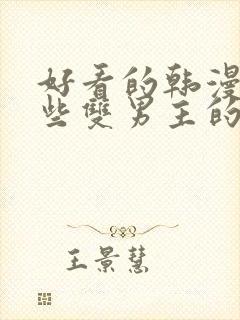 好看的韩漫
些雙男主的
王景慧